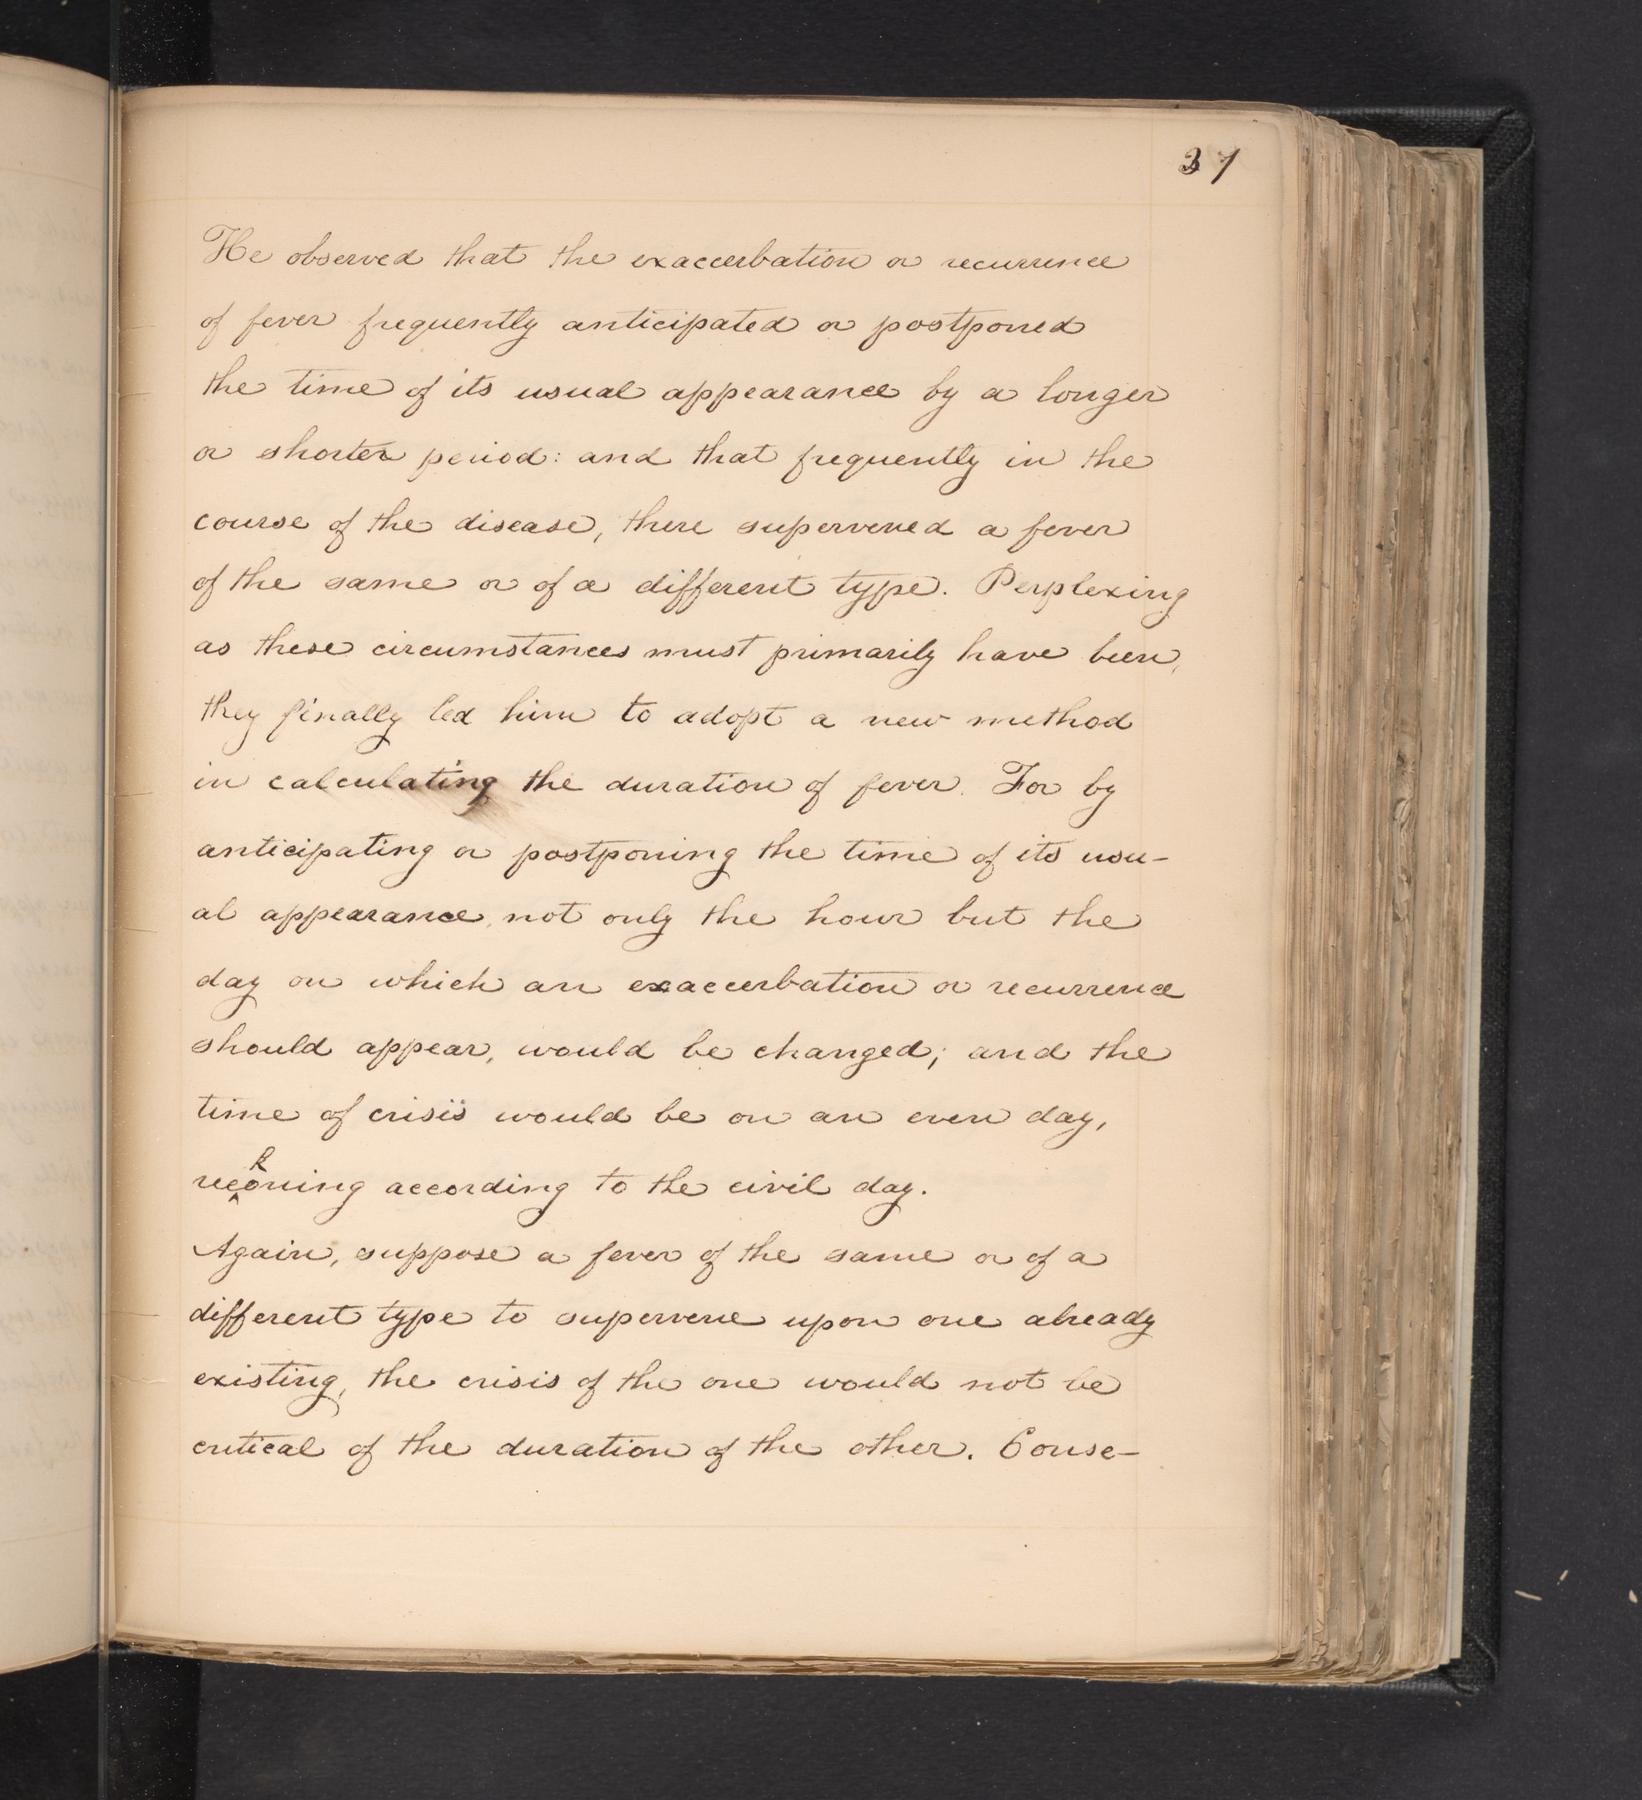 37
He observed that the exaccerbation or recurrence
of fever frequently anticipated or postponed
the time of its usual appearance by a longer
or shorter period: and that frequently in the
course of the disease, there supervened a fever
of the same or of a different type. Perplexing
as these circumstances must primarily have been,
they finally led him to adopt a new method
in calculating the duration of fever. For by
anticipating or postponing the time of its usu-
al appearance, not only the hour but the
day on which an exaccerbation or recurrence
should appear, would be changed; and the
time of crisis would be on an even day,
reckoning according to the civil day.
Again, suppose a fever of the same or of a
different type to supervene upon one already
existing, the crisis of the one would not be
critical of the duration of the other. Conse-